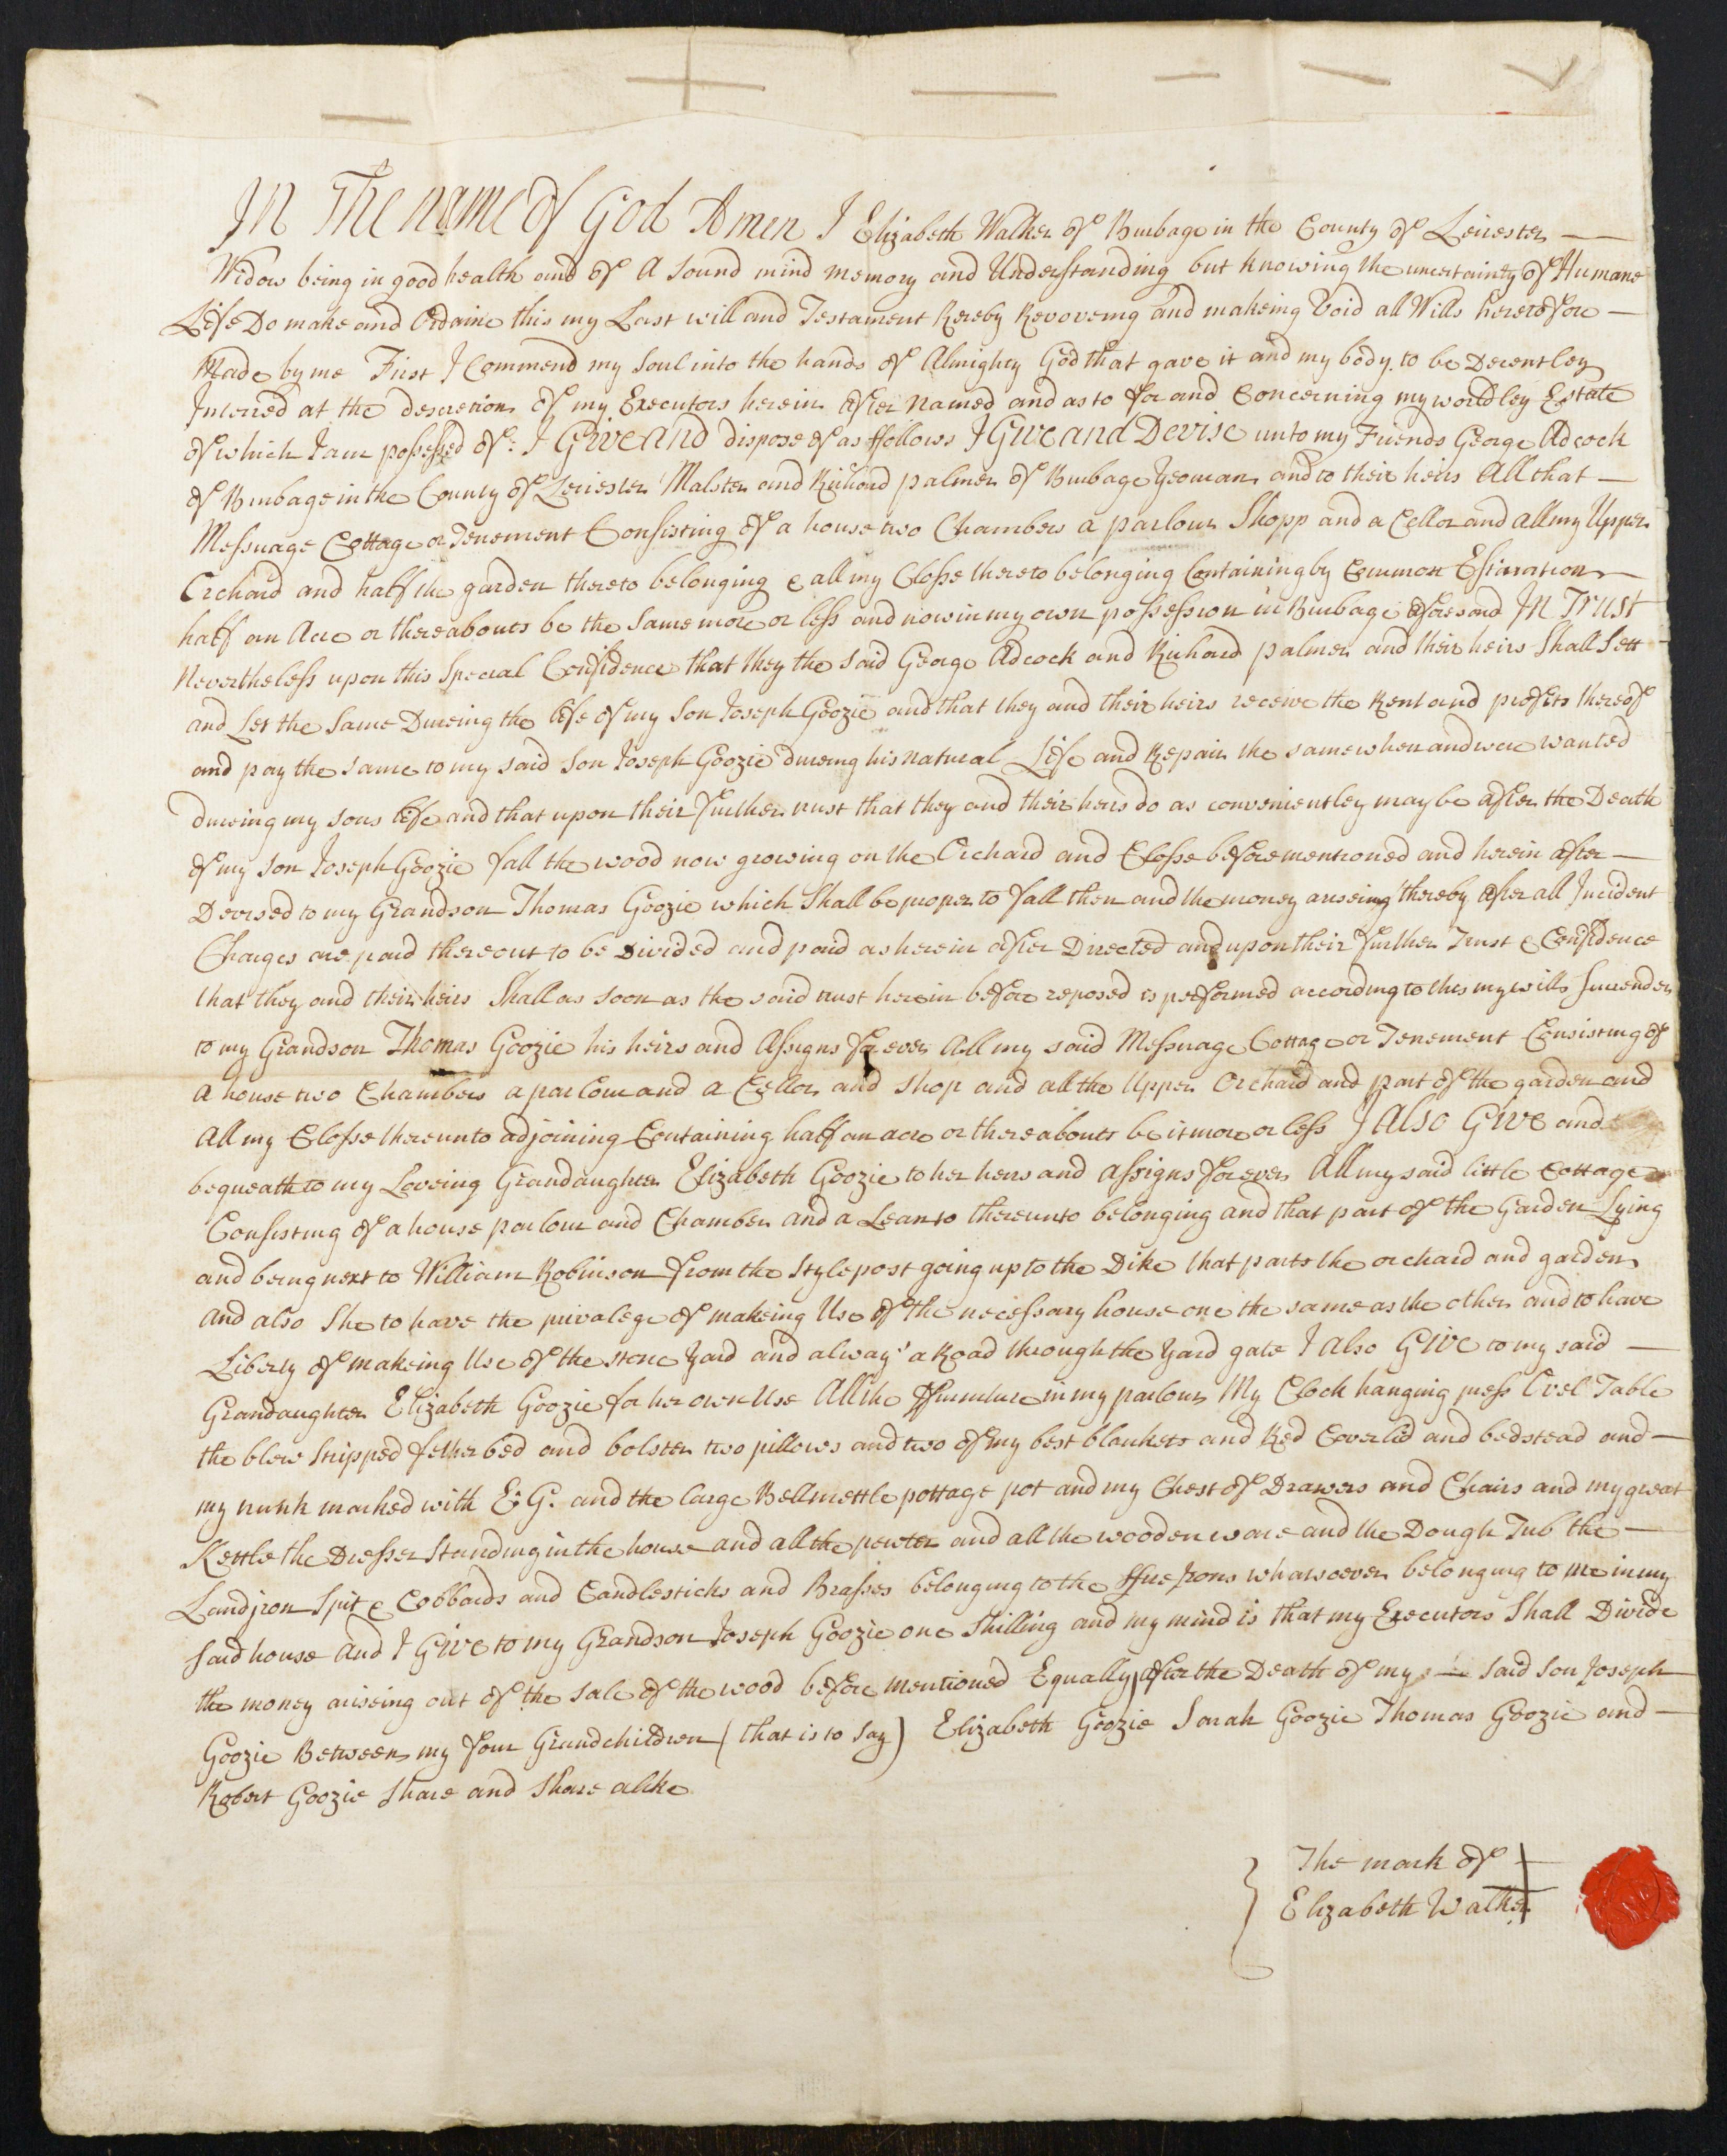 In The name of God Amen I Elizabeth Walker of Burbage in the County of Leicester
Widow being in good health and of A Sound mind memory and Understanding but knowing the uncertainty of Humane
Life Do make and Ordaine this my Last will and Testament hereby Revoveing and makeing Void all Wills heretofore
Made by me First I Commend my Soul into the hands of Almighty God that gave it and my body to be Decentley
Interred at the descretion of my Executors herein after named and as to for and Concerning my worldley Estate
of which I am possessed of: I Give and dispose of as ffollows I Give and Devise unto my Friends George Adcock
of Burbage in the County of Leicester Malster and Richard palmer of Burbage Yeoman and to their heirs All that
Messuage Cottage or Tenement Consisting of a house two Chambers a parlour Shopp and a Cellor and all my Upper
Orchard and half the garden thereto belonging & all my Close thereto belonging Containing by Common Estimation
half an Acre or thereabouts be the Same more or less and now in my own possession in Burbage aforesaid In Trust
Nevertheless upon this Special Confidence that they the Said George Adcock and Richard palmer and their heirs Shall Sett
and Let the Same Dureing the life of my Son Joseph Goozie and that they and their heirs receive the Rent and profits thereof
and pay the Same to my said Son Joseph Goozie dureing his natural Life and Repair the same when and were wanted
dureing my sons life and that upon their further trust that they and their heirs do as convenientley may be after the Death
of my Son Joseph Goozie fall the wood now growing on the Orchard and Close beforementioned and herein after
Devised to my Grandson Thomas Goozie which Shall be proper to fall then and the money ariseing thereby after all Incident
Charges are paid thereout to be Divided and paid as herein after Directed and upon their further Trust & Confidence
that they and their heirs Shall as soon as the said trust herein before reposed is performed according to this my will Surrender
to my Grandson Thomas Goozie his heirs and Assigns for ever All my said Messuage Cottage or Tenement Consisting of
a house two Chambers a parlour and a Cellor and Shop and all the Upper Orchard and part of the garden and
All my Close thereunto adjoining Containing half an acre or thereabouts be it more or less I Also Give and
bequeath to my Loveing Grandaughter Elizabeth Goozie to her heirs and assigns for ever All my said little Cottage
Consisting of a house parlour and Chamber and a Leanto thereunto belonging and that part of the Garden Lying
and being next to William Robinson from the Style post going up to the Dike that parts the orchard and garden
and also She to have the privalege of makeing Use of the necessary house one the same as the other and to have
Liberty of makeing Use of the stone Yard and alway's a Road through the Yard gate I Also Give to my said
Grandaughter Elizabeth Goozie for her own Use All the ffurniture in my parlour My Clock hanging press Ovel Table
the blew Stripped fether bed and bolster two pillows and two of my best blankets and Red Coverlid and bedstead and
my trunk marked with E: G. and the large Bellmettle pottage pot and my Chest of Drawers and Chairs and my great
Kettle the Dresser Standing in the house and all the pewter and all the wooden ware and the Dough Tub the
Landjron Spit & Cobbards and Candlesticks and Brasses belonging to the ffire Jrons whatsoever belonging to me in my
said house And I Give to my Grandson Joseph Goozie one Shilling and my mind is that my Executors Shall Divide
the money ariseing out of the Sale of the wood before mentioned Equally after the Death of my said Son Joseph
Goozie Between my four Grandchildren (that is to Say) Elizabeth Goozie Sarah Goozie Thomas Goozie and
Robert Goozie Share and Share alike
The mark of
Elizabeth Walker